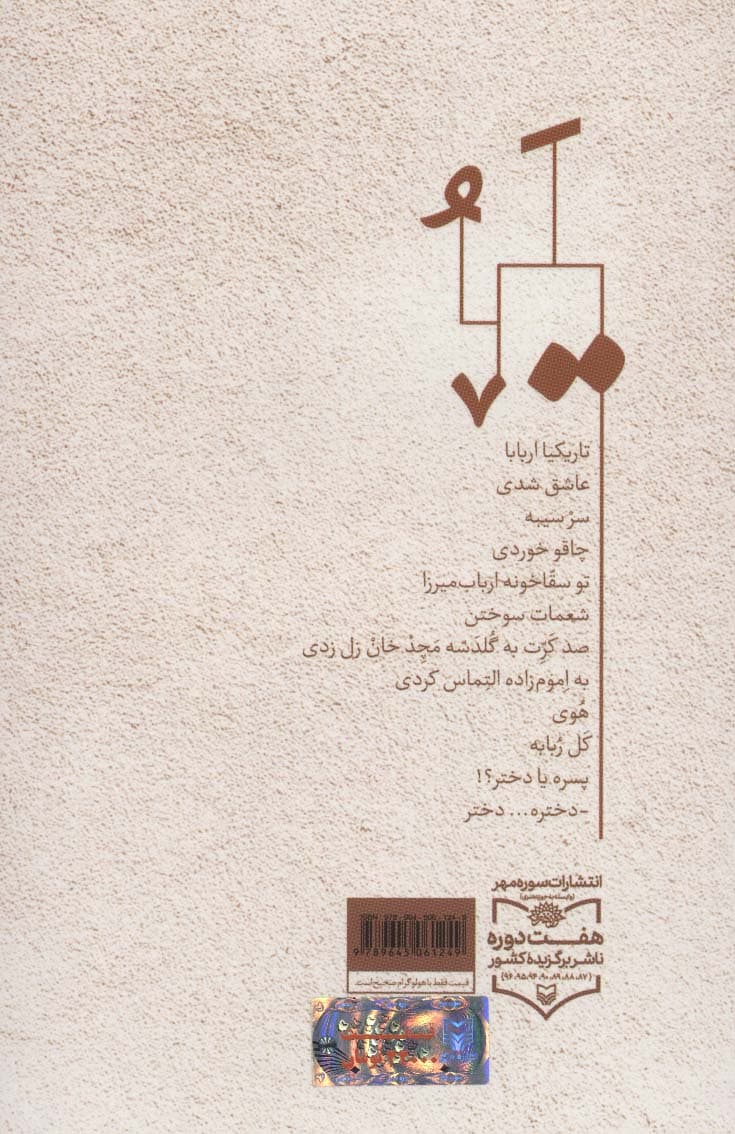 تاریکیا اربابا
عاشق شدی
سرْ سیبه
چاقو خوردی
تو سقّاخونه ارباب‌میرزا
شعمات سوختن
صد کَرِّت به گُلدَسّه مَچِدْ خانْ زل زدی
به اِموم‌زاده التماس کردی
هُوی
کَل رُبابه
پسره یا دختر؟!
-دختره... دختر
انتشارات سوره مهر
(وابسته به حوزه هنری)
هفت دوره
ناشر برگزیدهٔ کشور
{۸۷، ۸۸، ۸۹، ۹۰، ۹۴، ۹۵، ۹۶}
9789645061249
قیمت فقط با هولوگرام صحیح است.